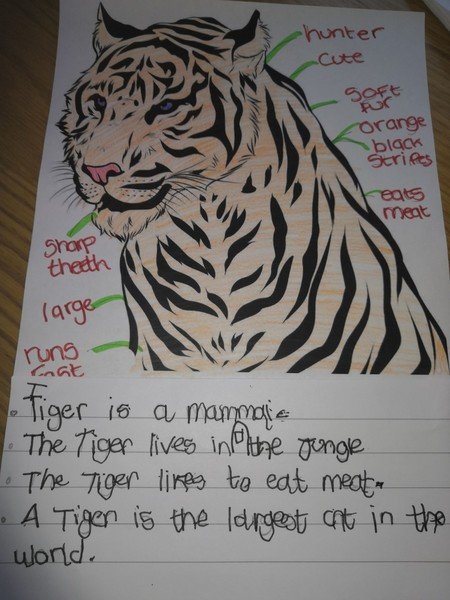 hunter
cute
soft
fur
orange
black
stripes
eats
meat
sharp
theeth
large
runs
fast
Tiger is a mammal.
The Tiger lives in the jungle
The Tiger likes to eat meat.
A Tiger is the largest cat in the
world.